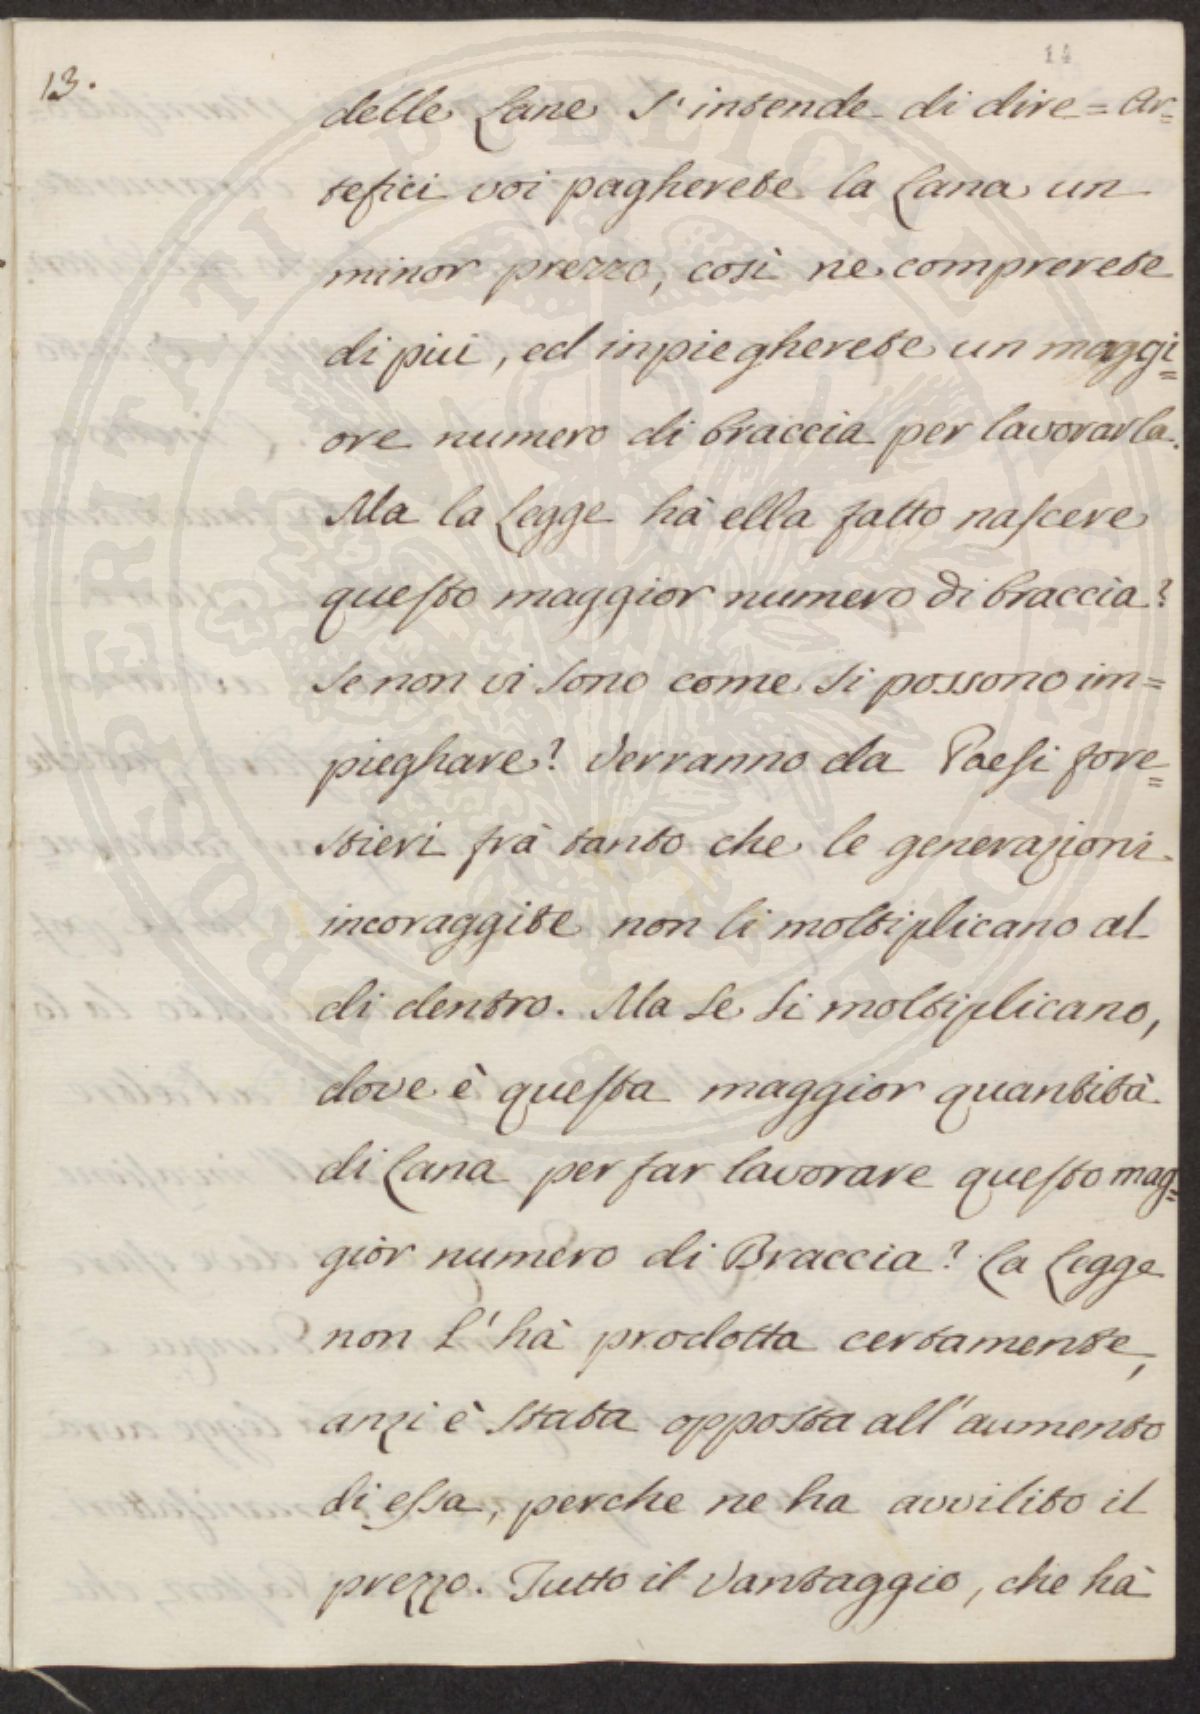 14
13.
delle Lane s'intende di dire = Ar=
tefici voi pagherete la Lana un
minor prezzo, così ne comprerete
di più, ed inpiegherete un maggi=
ore numero di braccia per lavorarla.
Ma la Legge hà ella fatto nascere
questo maggior numero di braccia?
se non vi sono come si possono im=
pieghare? Verranno da Paesi fore=
stieri frà tanto che le generazioni
incoraggite non li moltiplicano al
di dentro. Ma se si moltiplicano,
dove è questa maggior quantità
di Lana per far lavorare questo mag=
gior numero di Braccia? La Legge
non l'hà prodotta certamente,
anzi è stata opposta all'aumento
di essa, perche ne ha avvilito il
prezzo. Tutto il Vantaggio, che hà
PROSPERITATI PUBLICAE AUGENDAE